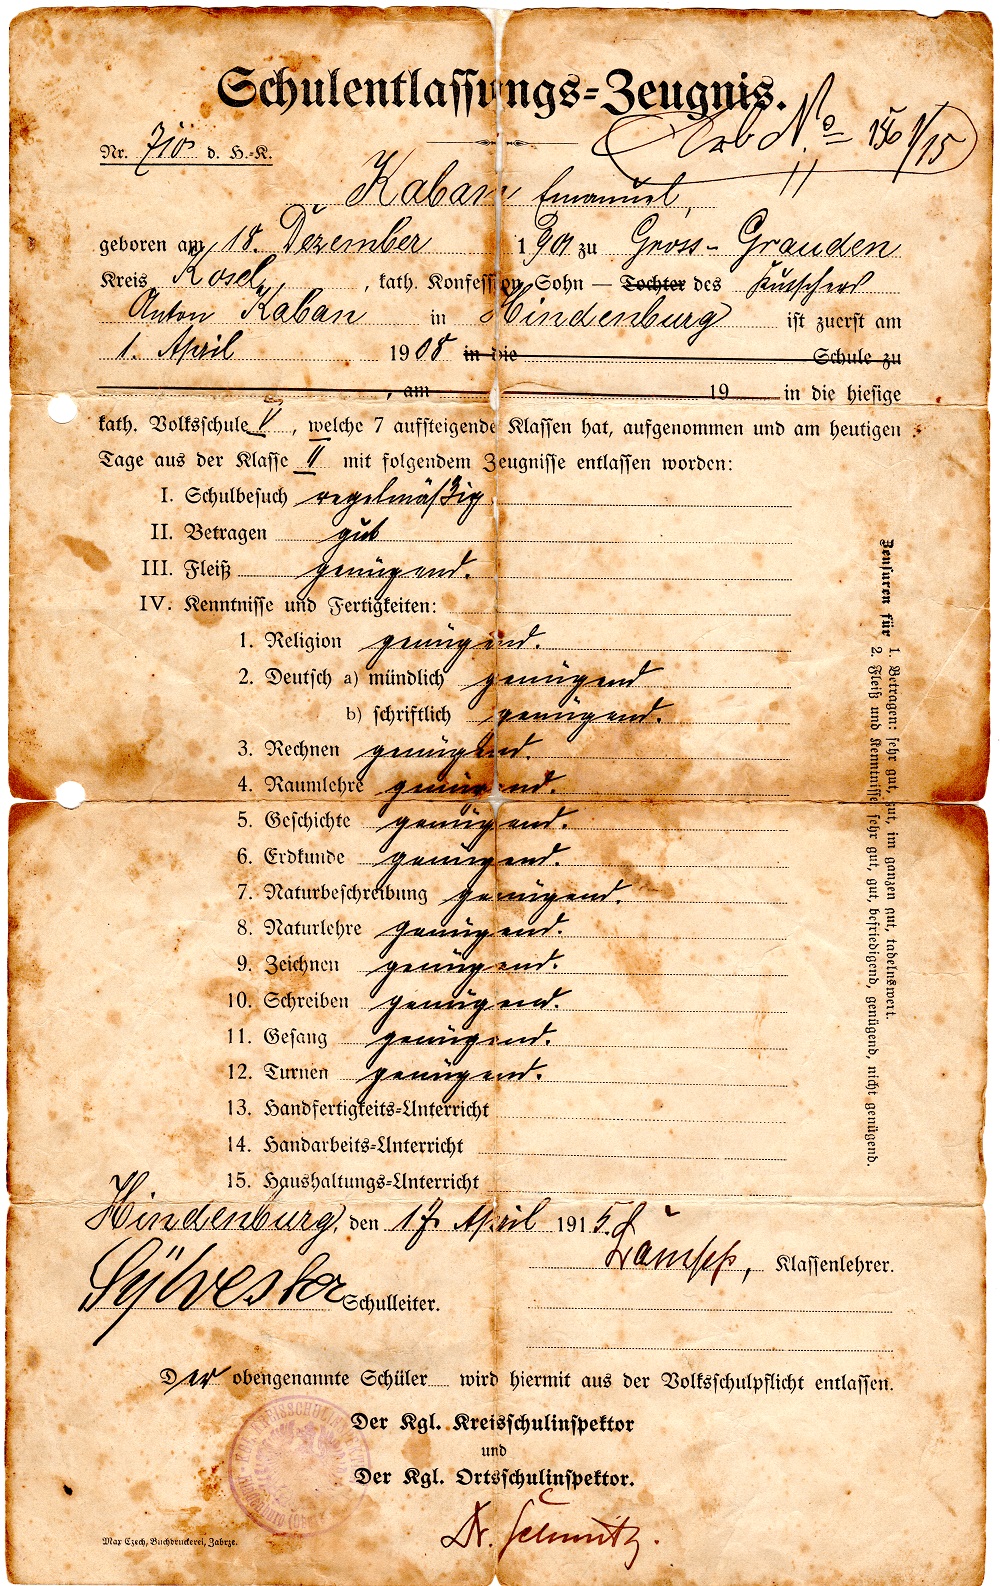 Schulentlassungs-Zeugnis.
Nr. 710 d. H.-K.
Arb No 156/15
Kaban Emanuel,
geboren am 18. Dezember 1901 zu Gross-Grauden
Kreis Kosel, kath. Konfession, Sohn — Tochter des Kutschers
Anton Kaban in Hindenburg ist zuerst am
1. April 1908 in die Schule zu
, am 19 in die hiesige
kath. Volksschule V, welche 7 aufsteigende Klassen hat, aufgenommen und am heutigen
Tage aus der Klasse II mit folgendem Zeugnisse entlassen worden:
I. Schulbesuch regelmäßig
II. Betragen gut
III. Fleiß genügend.
IV. Kenntnisse und Fertigkeiten:
1. Religion genügend.
2. Deutsch a) mündlich genügend
b) schriftlich genügend.
3. Rechnen genügend.
4. Raumlehre genügend.
5. Geschichte genügend.
6. Erdkunde genügend.
7. Naturbeschreibung genügend.
8. Naturlehre genügend.
9. Zeichnen genügend.
10. Schreiben genügend.
11. Gesang genügend.
12. Turnen genügend.
13. Handfertigkeits-Unterricht
14. Handarbeits-Unterricht
15. Haushaltungs-Unterricht
Zensuren für 1. Betragen: sehr gut, gut, im ganzen gut, tadelnswert.
2. Fleiß und Kenntnisse: sehr gut, gut, befriedigend, genügend, nicht genügend.
Hindenburg, den 17. April 1915.
, Klassenlehrer.
Sylvester Schulleiter.
Der obengenannte Schüler wird hiermit aus der Volksschulpflicht entlassen.
Der Kgl. Kreisschulinspektor
und
Der Kgl. Ortsschulinspektor.
Dr. Schmitz.
Max Czech, Buchdruckerei, Zabrze.